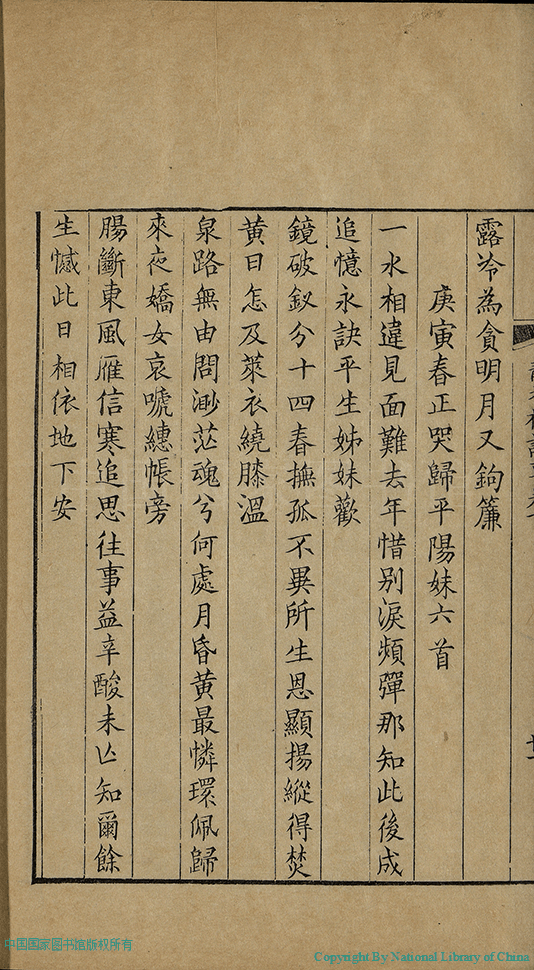 露冷為貪明月又鉤簾
庚寅春正哭歸平陽妹六首
一水相違見面難去年惜别淚頻彈那知此後成
追憶永訣平生姊妹歡
鏡破釵分十四春撫孤不異所生恩顯揚縱得焚
黄日怎及萊衣繞膝溫
泉路無由問渺茫魂兮何處月昏黄最憐環佩歸
來夜嬌女哀號繐帳旁
腸斷東風雁信寒追思往事益辛酸未亾知爾餘
生憾此日相依地下安
中国国家图书馆版权所有
Copyright By National Library of China